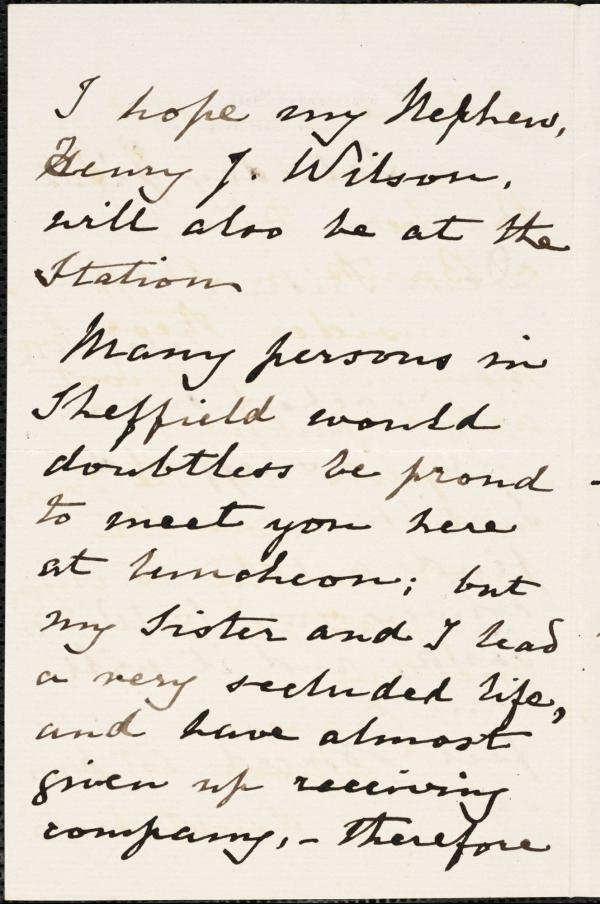 I hope my Nephew,
Henry J. Wilson,
will also be at the
Station
Many persons in
Sheffield would
doubtless be proud
to meet you here
at luncheon; but
my Sister and I lead
a very secluded life,
and have almost
given up receiving
company, - therefore